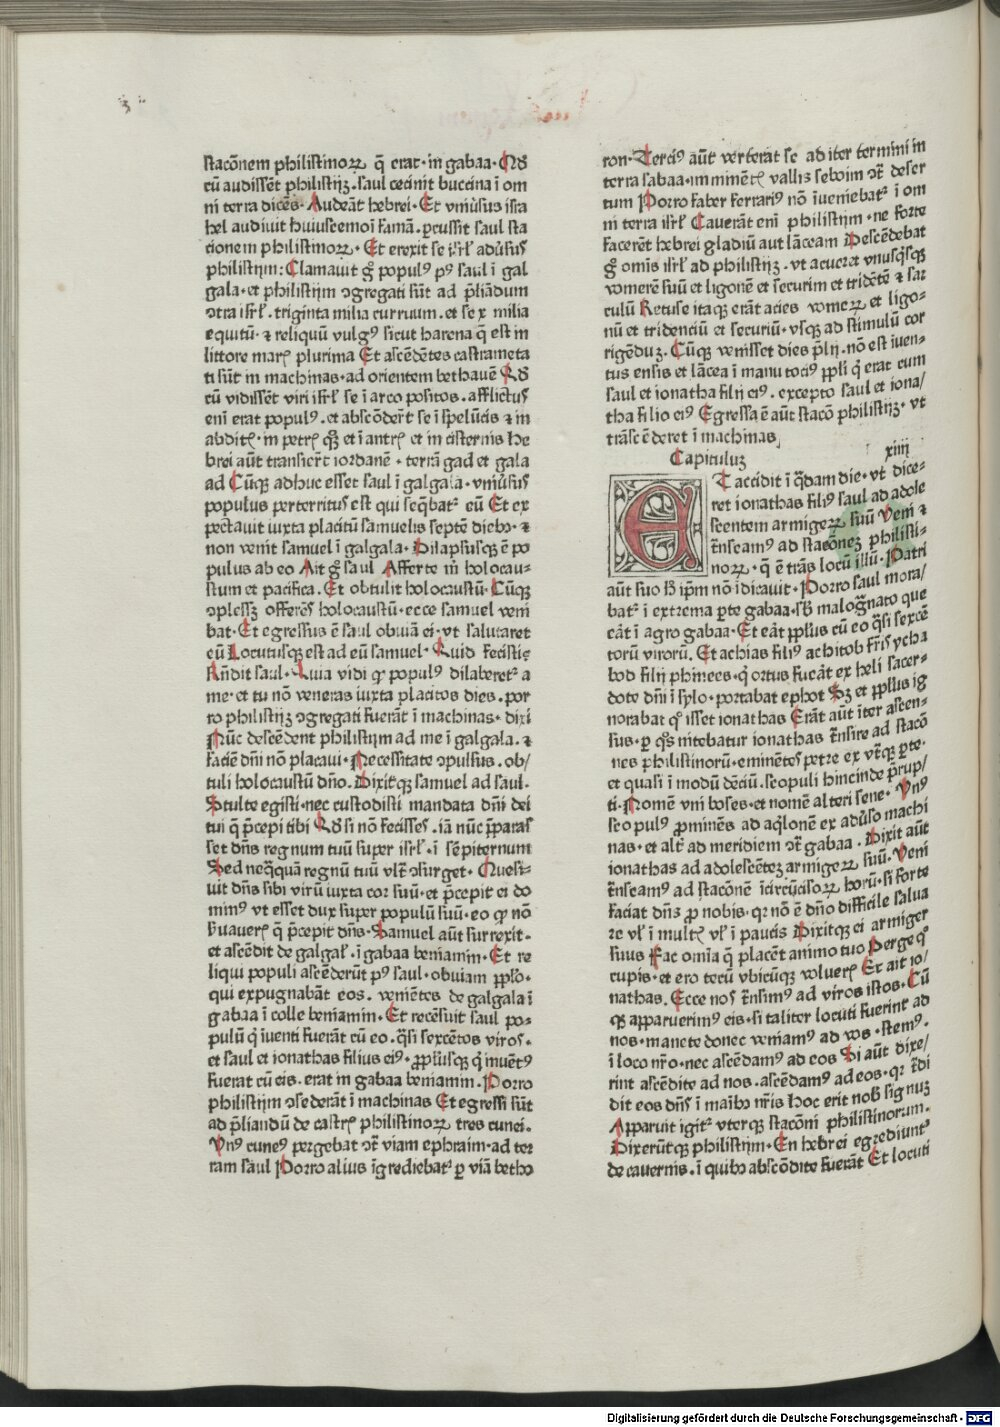 stacōnem philistinoꝝ q̄ erat · in gabaa · Qd̄
cū audissēt philistijꝫ · saul cecinit buccina ī om
ni terra dicēs · Audeāt hebrei · Et vniu̾sus isra
hel audiuit huiuscemoī famā · ꝑcussit saul sta
cionem philistinoꝝ · Et erexit se isrl̄ adu̾sus
philistijm : Clamauit gͦ popul⁹ p⁹ saul ī gal
gala · et philistijm ꝯgregati sūt ad p̄liādum
ꝯtra isrl̄ · triginta milia curruum · et sex milia
equitū · ⁊ reliquū vulg⁹ sicut harena q̄ est in
littore marꝭ plurima Et ascēdētes castrameta
ti sūt in machinas · ad orientem bethauē Qd̄
cū vidissēt viri isrl̄ se ī arco positos · afflictus
eni erat popul⁹ · et abscōder̄t se ī spelūcis ⁊ in
abditꝭ · in petrꝭ qꝫ et ī antrꝭ et in cisternis he
brei aūt transier̄t iordanē · terrā gad et gala
ad Cūqꝫ adhuc esset saul ī galgala · vniu̾sus
populus perterritus est qui seq̄bat᷑ eū Et ex
pectauit iuxta placitū samuelis septē diebꝫ · ⁊
non venit samuel ī galgala · Dilapsusqꝫ ē po
pulus ab eo Ait gͦ saul Afferte m̄ holocau⸗
stum et pacifica · Et obtulit holocaustū · Cūqꝫ
ꝯplessꝫ offerēs holocaustū · ecce samuel veni
bat · Et egressus ē saul obuiā ei · vt salutaret
eū Locutusqꝫ est ad eū samuel · Quid fecistis
Rn̄dit saul · Quia vidi qꝫ popul⁹ dilaberet᷑ a
me · et tu nō veneras iuxta placitos dies · por
ro philistijꝫ ꝯgregati fuerāt ī machinas · dixi
Nūc descēdent philistijm ad me ī galgala · ⁊
faciē dn̄i nō placaui · Necessitate ꝯpulsus · ob/
tuli holocaustū dn̄o · Dixitqꝫ samuel ad saul ·
Stulte egisti · nec custodisti mandata dn̄i dei
tui q̄ p̄cepi tibi Qd̄ si nō fecisses · iā nūc p̄paras
set dn̄s regnum tuū super isrl̄ · ī sēpiternum
Sed neq̄quā regnū tuū vltͣ ꝯsurget · Quesi⸗
uit dn̄s sibi virū iuxta cor suū · et p̄cepit ei do
min⁹ vt esset dux super populū suū · eo qꝫ nō
s̾uauerꝭ q̄ p̄cepit dn̄s · Samuel aūt surrexit ·
et ascēdit de galgal̄ · ī gabaa beniamin · Et re
liqui populi ascēderūt p⁹ saul · obuiam ꝑplo ·
qui expugnabāt eos · veniētes de galgala ī
gabaa ī colle beniamin · Et recēsuit saul po⸗
pulū q̄ iuenti fuerāt cū eo · q̄si sexcētos viros ·
et saul et ionathas filius ei⁹ · ꝓplusqꝫ q̄ inuēt⁹
fuerat cū eis · erat in gabaa beniamin · Porro
philistijm ꝯsederāt ī machinas Et egressi sūt
ad p̄liandū de castrꝭ philistinoꝝ tres cunei ·
Vn⁹ cune⁹ pergebat ꝯtͣ viam ephraim · ad ter
ram saul Porro alius īgrediebat᷑ ꝑ viā betho
ron · Terci⁹ aūt verterat se ad iter termini in
terra sabaa · imminētꝭ vallis seboim ꝯtͣ deser
tum Porro faber ferrari⁹ nō īueniebat᷑ ī om
ni terra isrl̄ Cauerāt eni philistijm · ne forte
facerēt hebrei gladiū aut lāceam Descēdebat
gͦ omīs isrl̄ ad philistijꝫ · vt acueret vnusq̄sqꝫ
vomerē suū et ligonē et securim et tridētē ⁊ sar
culū Retuse itaqꝫ erāt acies vomeꝝ et ligo⸗
nū et tridenciū et securiū · vsqꝫ ad stimulū cor
rigēduꝫ · Cūqꝫ venisset dies p̄lij · nō est iuen⸗
tus ensis et lācea ī manu toci⁹ ꝑpli q̄ erat cum
saul et ionatha filij ei⁹ · excepto saul et iona/
tha filio ei⁹ Egressa ē aūt stacō philistijꝫ · vt
trāscēderet ī machinas
Capituluꝫ xiiii
ET accidit ī q̄dam die · vt dice⸗
ret ionathas fili⁹ saul ad adole
scentem armigeꝝ suū Veni ⁊
trn̄seam⁹ ad stacōneꝫ philisti⸗
noꝝ · q̄ ē trās locū illū · Patri
aūt suo h̄ ip̄m nō īdicauit · Porro saul mora/
bat᷑ ī extrema ꝑte gabaa · sb̄ malogͣnato que
erāt ī agro gabaa · Et erāt ꝑplus cū eo q̄si sexcē
torū virorū · Et achias fili⁹ achitob fr̄is ycha
bod filij phinees · q̄ ortus fuerāt ex heli sacer⸗
dote dn̄i ī sylo · portabat ephot Sꝫ et ꝑplus ig
norabat qͦ isset ionathas Erāt aūt īter ascen⸗
sus · ꝑ q̄s nitebatur ionathas trn̄sire ad stacō
nes philistinorū · eminētes petre ex vtͣqꝫ ꝑte ·
et quasi ī modū dēciū · scopuli hincinde p̄rup/
ti · Nomē vni boses · et nomē alteri sene · Vn⁹
scopul⁹ ꝓminēs ad aq̄lonē ex adu̾so machi
nas · et altͬ ad meridiem ꝯtͣ gabaa · Dixit aūt
ionathas ad adolescētēꝫ armigeꝝ suū · Veni
trn̄seam⁹ ad stacōnē īcircūcisoꝝ horū · si forte
faciat dn̄s ꝓ nobis · qꝛ nō ē dn̄o difficile salua
re vl̄ ī multꝭ vl̄ ī paucis Dixitqꝫ ei armiger
suus Fac omīa q̄ placēt animo tuo Perge qͦ
cupis · et ero tecū vbicūqꝫ volueris Et ait io/
nathas · Ecce nos trn̄sim⁹ ad viros istos · Cū
qꝫ apparuerim⁹ eis · si taliter locuti fuerint ad
nos · manete donec veniam⁹ ad vos · stem⁹ ·
ī loco nr̄o · nec ascēdam⁹ ad eos Si aūt dixe/
rint ascēdite ad nos · ascēdam⁹ ad eos · qꝛ trͣdi
dit eos dn̄s ī manibꝫ nr̄is hoc erit nob̄ signuꝫ
Apparuit igit᷑ vterqꝫ stacōni philistinorum ·
Dixerūtqꝫ philistijm · En hebrei egrediunt᷑
de cauernis · ī quibꝫ abscōdite fuerāt Et locuti
Digitalisierung gefördert durch die Deutsche Forschungsgemeinschaft - DFG